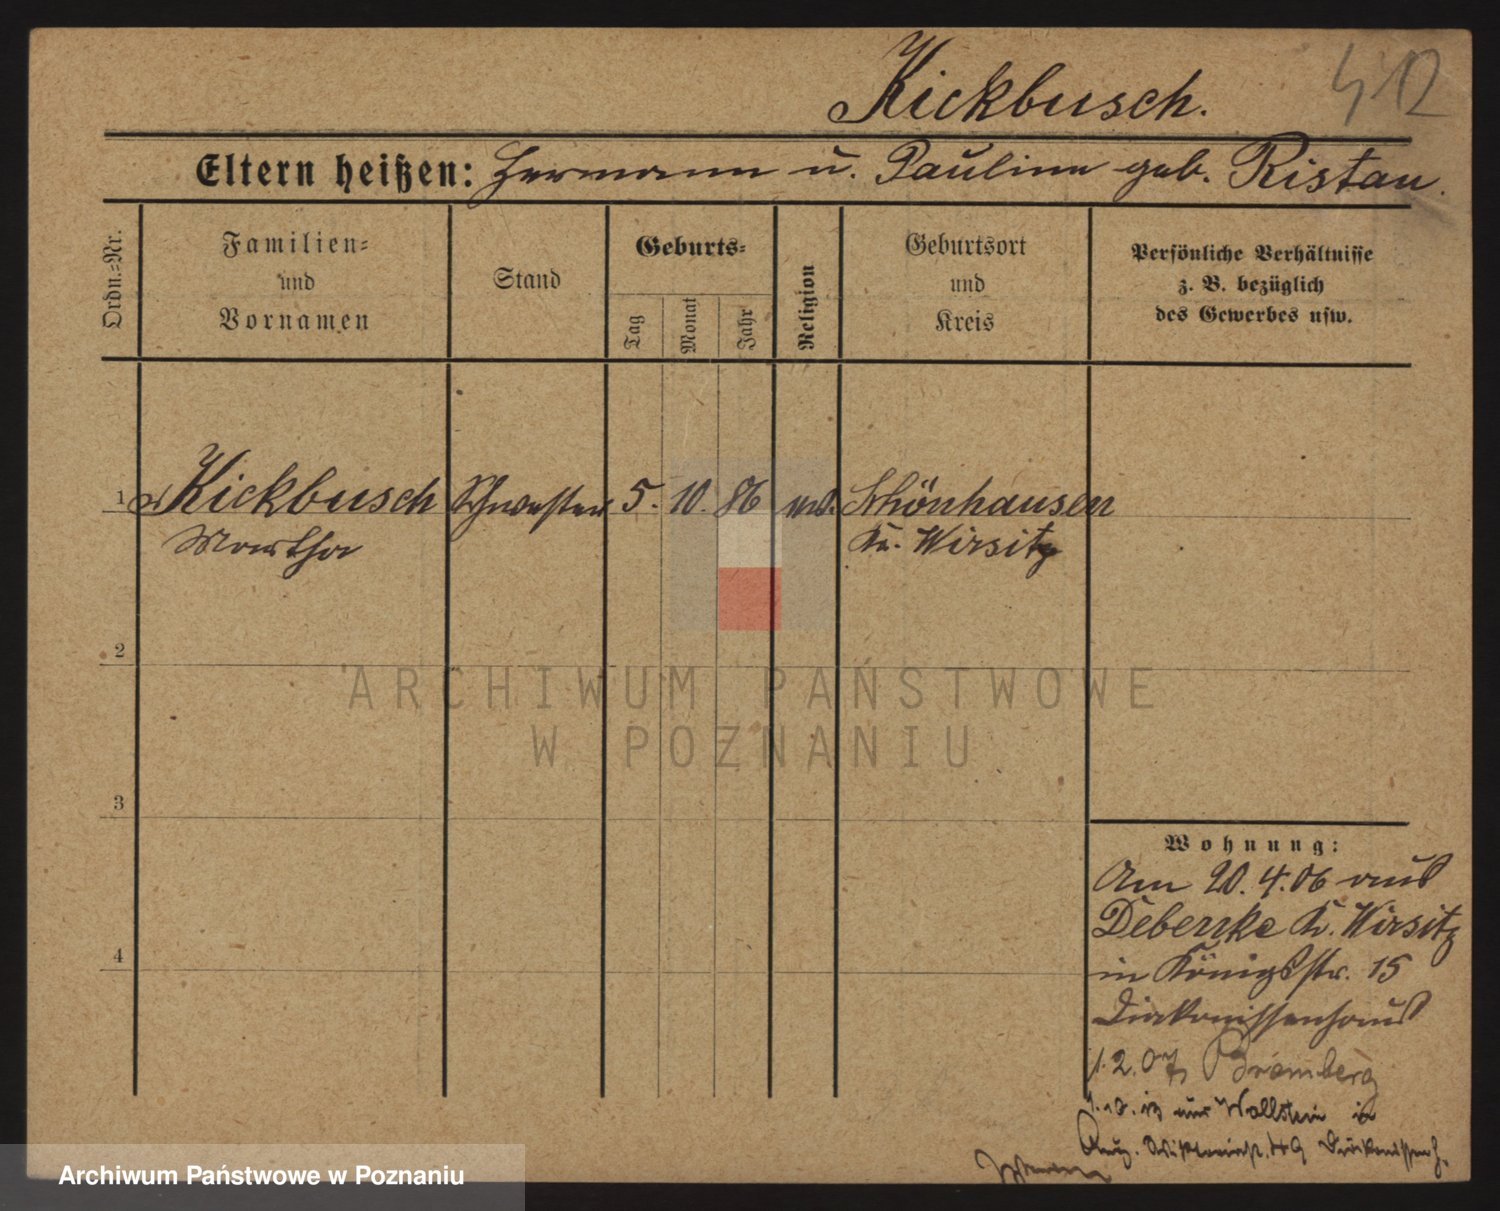 Kickbusch.
412
Eltern heißen: Hermann u. Pauline geb. Ristau.
Ordn.=Nr.
Familien=
und
Vornamen
Stand
Geburts=
Tag
Monat
Jahr
Religion
Geburtsort
und
Kreis
Persönliche Verhältnisse
z. B. bezüglich
des Gewerbes usw.
1 Kickbusch Schwester 5. 10. 86 ev. Schönhausen
Martha Kr. Wirsitz
2
3
4
Wohnung:
Am 20.4.06 aus
Debenke Kr. Wirsitz
in Königstr. 15
Diakonissenhaus
1.2.07 Bromberg
1.10.13 aus Wollstein in
Aug. 49 Diakonissenh.
ARCHIWUM PAŃSTWOWE
W POZNANIU
Archiwum Państwowe w Poznaniu